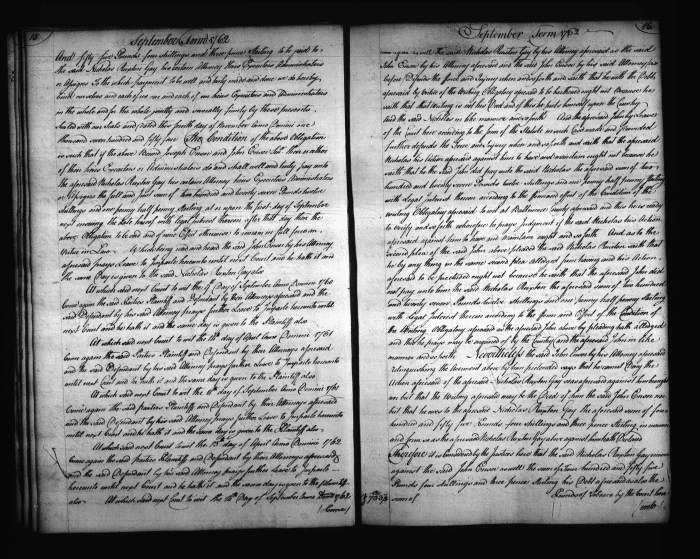 15
September Term 1762
And fifty five Pounds four shillings and three pence Sterling to be paid to
the said Nicholas Ruxton Gay his certain Attorney Heirs Executors Administrators
or Assigns To the which payment to be well and truly made and done we do hereby
bind ourselves and each of us our and each of our Heirs Executors and Administrators
in the whole and for the whole jointly and severally firmly by these presents
Sealed with our Seals and dated this fourth day of November Anno Domini one
thousand seven hundred and fifty four The Condition of the above Obligation
is such that if the above Bound Joseph Ensor and John Ensor or either
of their Heirs Executors or Administrators do and shall well and truly pay unto
the aforesaid Nicholas Ruxton Gay his certain Attorney Heirs Executors Administrators
or Assigns the full and just sum of two hundred and twenty seven Pounds twelve
shillings and one penny half penny Sterling at or upon the first day of September
next ensuing the date hereof with legal interest thereon after that day then the
above Obligation to be void and of none Effect otherwise to remain in full force and
Virtue in Law. Which being read and heard the said John Ensor by his Attorney
aforesaid prays Leave to Imparle hereunto until next Court and he hath it and
the same Day is given to the said Nicholas Ruxton Gay also
At which said next Court to wit the day of September Anno Domini 1760
Come again the said Parties Plaintiff and Defendant by their Attorneys aforesaid and the
said Defendant by his said Attorney prays further Leave to Imparle hereunto until
next Court and he hath it and the same day is given to the Plaintiff also
At which said next Court to wit the day of April Anno Domini 1761
Come again the said Parties Plaintiff and Defendant by their Attorneys aforesaid
and the said Defendant by his said Attorney prays further Leave to Imparle hereunto
until next Court and he hath it and the same day is given to the Plaintiff also
At which said next Court to wit the day of September Anno Domini 1761
Come again the said parties Plaintiff and Defendant by their Attorneys aforesaid
and the said Defendant by his said Attorney prays further Leave to Imparle hereunto
until next Court and he hath it and the same day is given to the Plaintiff also
At which said next Court to wit the day of April Anno Domini 1762
Come again the said parties Plaintiff and Defendant by their Attorneys aforesaid
and the said Defendant by his said Attorney prays further Leave to Imparle
hereunto until next Court and he hath it and the same day is given to the plaintiff
also. At which said next Court to wit the Day of September Anno Domini 1762
(Come)
16
September Term 1762
come again as well the said Nicholas Ruxton Gay by his Attorney aforesaid as the said
John Ensor by his Attorney aforesaid and the said John Ensor by his said Attorney as
before Defends the force and Injury when and so forth and saith that he with the Debt
aforesaid by virtue of the Writing Obligatory aforesaid to be burthened ought not because he
saith that that Writing is not his Deed and of this he puts himself upon the Country
and the said Nicholas in like manner and so forth And the aforesaid John by Leave
of the Court here according to the form of the Statute in such Case made and provided
further defends the Force and Injury when and so forth and saith that the aforesaid
Nicholas his Action aforesaid against him to have and maintain ought not because he
saith that he the said John did pay unto the said Nicholas the aforesaid sum of two
hundred and twenty seven Pounds twelve shillings and one penny half penny Sterling
with legal interest thereon according to the form and effect of the Condition of the
writing Obligatory aforesaid to wit at Baltimore County aforesaid and this he is ready
to verify and so forth wherefore he prays Judgment if the said Nicholas his Action
aforesaid against him to have and maintain ought and so forth And as to the
second plea of the said John above pleaded the said Nicholas Ruxton saith that
he by any thing in the same second plea alledged from having and his Action
aforesaid to be precluded ought not because he saith that the aforesaid John did
not pay unto him the said Nicholas Ruxton the aforesaid sum of two hundred
and twenty seven Pounds twelve shillings and one penny half penny Sterling
with Legal Interest thereon according to the form and Effect of the Condition of
the Writing Obligatory aforesaid as the aforesaid John above by pleading hath alledged
and this he prays may be enquired of by the Country and the aforesaid John in like
manner and so forth Nevertheless the said John Ensor by his Attorney aforesaid
relinquishing the averment above by him pretended says that he cannot Deny the
Action aforesaid of the aforesaid Nicholas Ruxton Gay
nor but that the Writing aforesaid may be the Deed of him the said John Ensor nor
but that he owes to the aforesaid Nicholas Ruxton Gay the aforesaid sum of four
hundred and fifty five Pounds four shillings and three pence Sterling in manner
and form as the aforesaid Nicholas Ruxton Gay above against him hath Declared
Therefore it is Considered by the Justices here that the said Nicholas Ruxton Gay recover
against the said John Ensor as well the sum of four hundred and fifty five
Pounds four shillings and three pence Sterling his Debt aforesaid as also the
sum of Pounds of Tobacco by the Court here